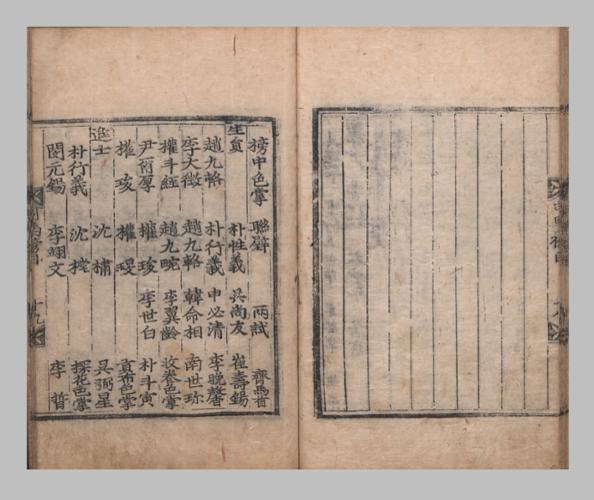 榜中色掌 聯璧 兩試 齊馬首
生員 朴性義 吳尚友 崔壽錫
趙九輅 朴行義 申必清 李晚馨
李大徵 趙九輅 韓命相 南世珎
權斗經 趙九畹 李翼齡 收卷色掌
尹 厚 權 李世白 朴斗寅
權 權 色掌
進士 沈橚 吳弼星
朴行義 沈 探花色掌
閔元錫 李翊文 李晢
十九